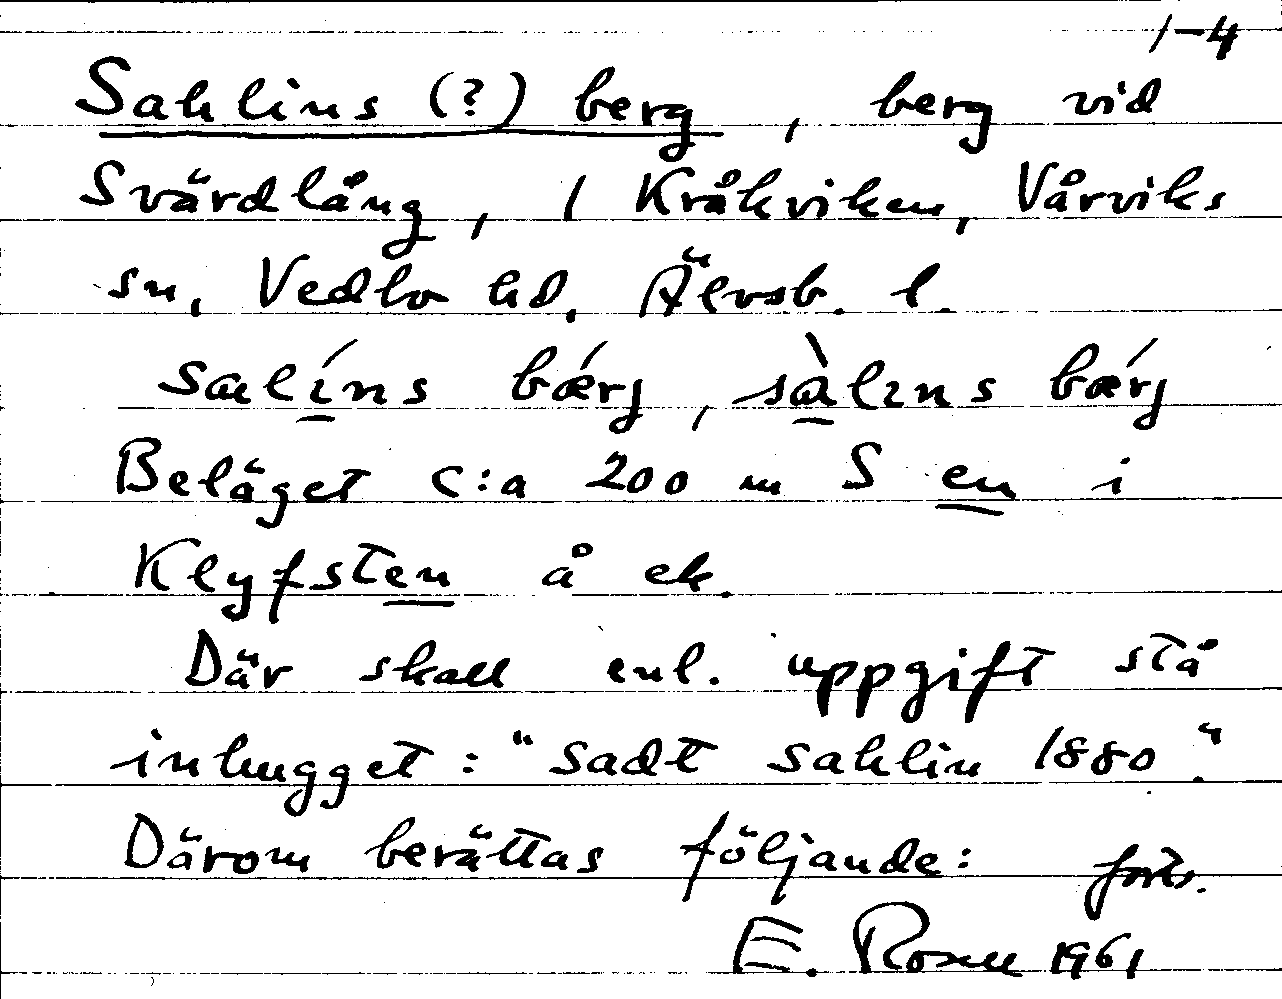 1-4
Sahlins (?) berg, berg vid
Svärdlång, / Kråkviken, Vårviks
sn, Vedbo hd, Älvsb. l.
salíns bærj, sàlıns bærj
Beläget c:a 200 m S en i
Klyfsten å ek.
Där skall enl. uppgift stå
inhugget: "sadt sahlin 1880".
Därom berättas följande: forts.
E. Rosell 1961